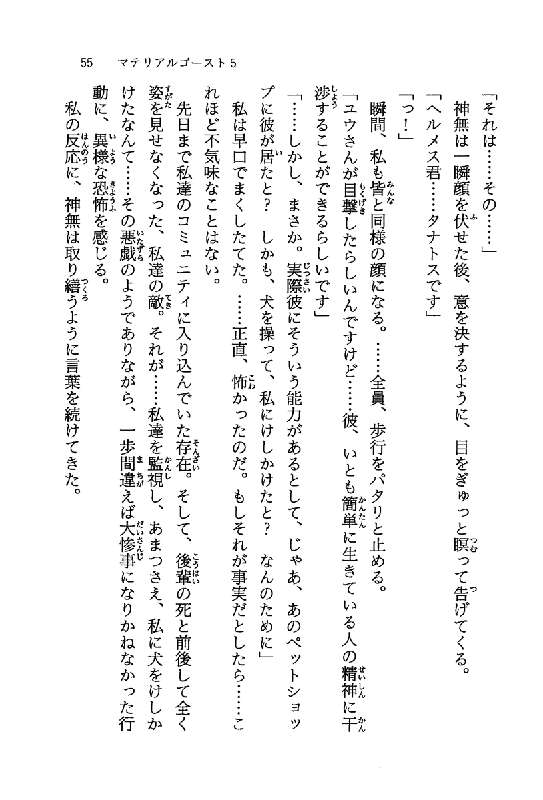 55　マテリアルゴースト5
「それは……その……」
　神無は一瞬顔を伏せた後、意を決するように、目をぎゅっと瞑って告げてくる。
「ヘルメス君……タナトスです」
「っ！」
　瞬間、私も皆と同様の顔になる。……全員、歩行をパタリと止める。
「ユウさんが目撃したらしいんですけど……彼、いとも簡単に生きている人の精神に干
渉することができるらしいです」
「……しかし、まさか。実際彼にそういう能力があるとして、じゃあ、あのペットショッ
プに彼が居たと？　しかも、犬を操って、私にけしかけたと？　なんのために」
　私は早口でまくしたてた。……正直、怖かったのだ。もしそれが事実だとしたら……こ
れほど不気味なことはない。
　先日まで私達のコミュニティに入り込んでいた存在。そして、後輩の死と前後して全く
姿を見せなくなった、私達の敵。それが……私達を監視し、あまつさえ、私に犬をけしか
けたなんて……その悪戯のようでありながら、一歩間違えば大惨事になりかねなかった行
動に、異様な恐怖を感じる。
　私の反応に、神無は取り繕うように言葉を続けてきた。